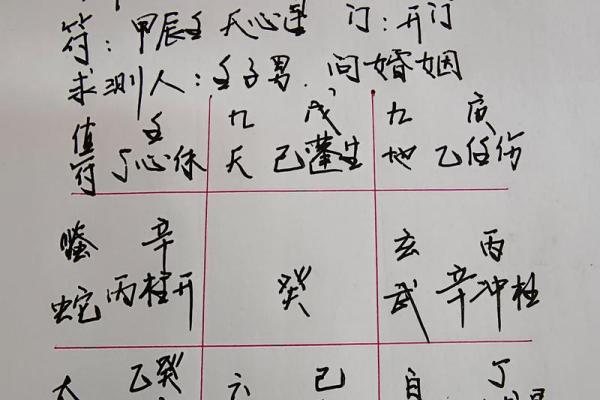 符：甲辰壬 天心逢 门：开门
求测人：壬子男. 问婚姻
值 壬 九 戊 九 庚
符 丁心休 天 己蓬生 地 乙任伤
螣 辛 玄 丙
蛇 丙柱开 癸 武 辛冲柱
太 乙癸 六 己 白 丁